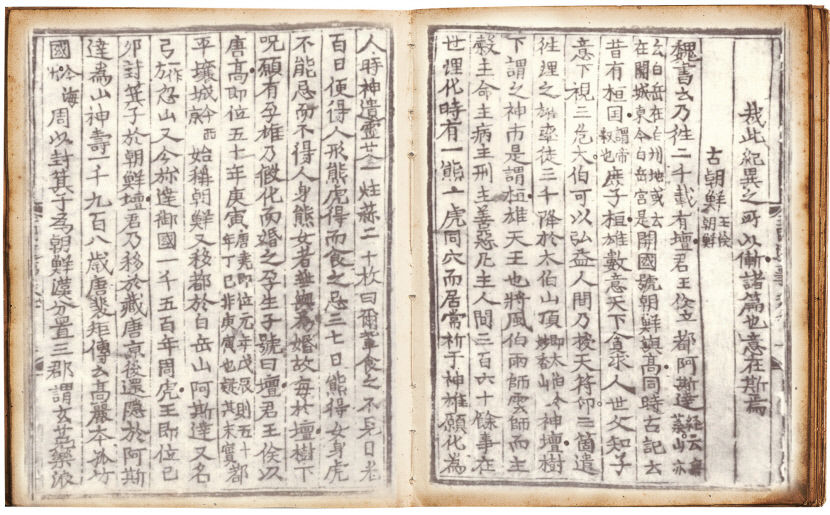 哉此紀異之所以慚諸篇也意在斯焉
古朝鮮 王儉朝鮮
魏書云乃往二千載有壇君王儉立都阿斯達 經云無葉山亦
云白岳在白州地或云在開城東今白岳宮是 開國號朝鮮與高同時古記云
昔有桓囯 謂帝釋也 庶子桓雄數意天下貪求人世父知子
意下視三危太伯可以弘益人間乃授天符印三箇遣
徃理之雄率徒三千降於太伯山頂 即太伯今妙香山 神壇樹
下謂之神市是謂桓雄天王也將風伯雨師雲師而主
穀主命主病主刑主善惡凡主人間三百六十餘事在
世理化時有一熊一虎同穴而居常祈于神雄願化為
人時神遺靈艾一炷蒜二十枚曰爾軰食之不見日光
百日便得人形熊虎得而食之忌三七日熊得女身虎
不能忌而不得人身熊女者無與為婚故每於壇樹下
呪願有孕雄乃假化而婚之孕生子號曰壇君王儉以
唐高即位五十年庚寅 唐堯即位元年戊辰則五十年丁巳非庚寅也疑其未實 都
平壤城 今西京 始稱朝鮮又移都於白岳山阿斯達又名
弓 一作方 忽山又今旀達御國一千五百年周虎王即位己
卯封箕子於朝鮮壇君乃移於藏唐京後還隱於阿斯
達為山神壽一千九百八歲唐裵矩傳云高麗本孤竹
國 今海州 周以封箕子為朝鮮漢分置三郡謂玄菟樂浪